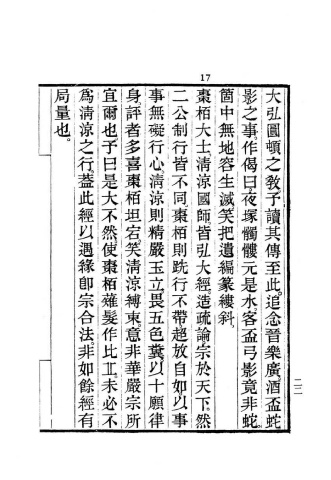 17
大弘圓頓之敎予讀其傳至此。追念晉樂廣酒盃蛇
影之事。作偈曰。夜塚髑髏元是水。客盃弓影竟非蛇。
箇中無地容生滅。笑把遺編篆縷斜。
棗栢大士。淸涼國師。皆弘大經。造疏論。宗於天下。然
二公制行皆不同。棗栢則跣行不帶。超放自如。以事
事無礙行心。淸涼則精嚴玉立。畏五色糞。以十願律
身。評者多喜棗栢坦宕。笑淸涼縛束。意非華嚴宗所
宜爾也。予曰。是大不然。使棗栢薙髮作比丘。未必不
爲淸涼之行。蓋此經以遇緣卽宗合法。非如餘經有
局量也。
二二